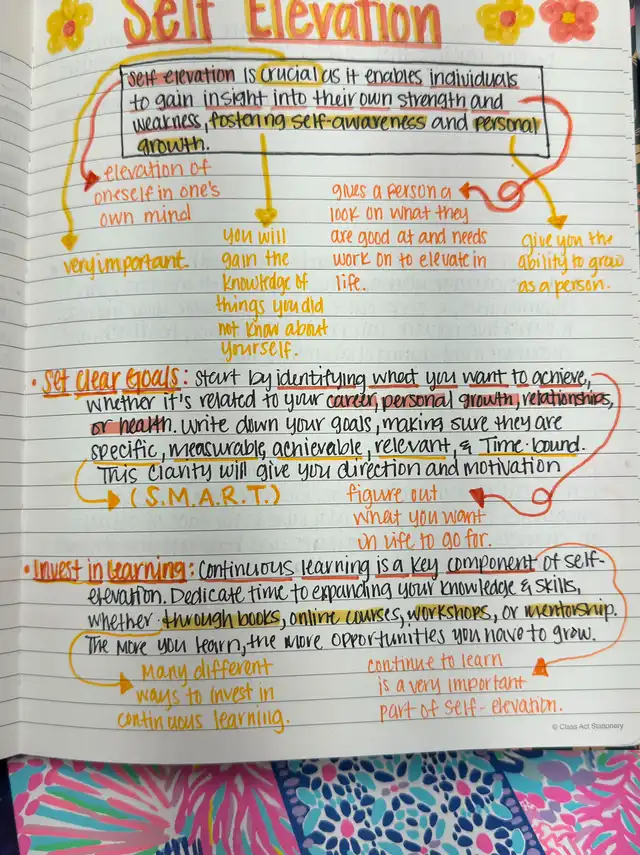 Self Elevation
self elevation is crucial as it enables individuals
to gain insight into their own strength and
weakness, fostering self-awareness and personal
growth.
elevation of
oneself in one's
own mind
very important
you will
gain the
knowledge of
things you did
not know about
yourself.
gives a person a
look on what they
are good at and needs
work on to elevate in
life.
give you the
ability to grow
as a person.
• Set Clear Goals: Start by identifying what you want to achieve,
whether it's related to your career, personal growth, relationships,
or health. Write down your goals, making sure they are
specific, measurable, achievable, relevant, & Time-bound.
This clarity will give you direction and motivation
(S.M.A.R.T.)
figure out
what you want
in life to go for.
• Invest in learning: Continuous learning is a key component of self-
elevation. Dedicate time to expanding your knowledge & skills,
whether through books, online courses, workshops, or mentorship.
The more you learn, the more opportunities you have to grow.
Many different
ways to invest in
continuous learning.
continue to learn
is a very important
part of self-elevation.
© Class Act Stationery